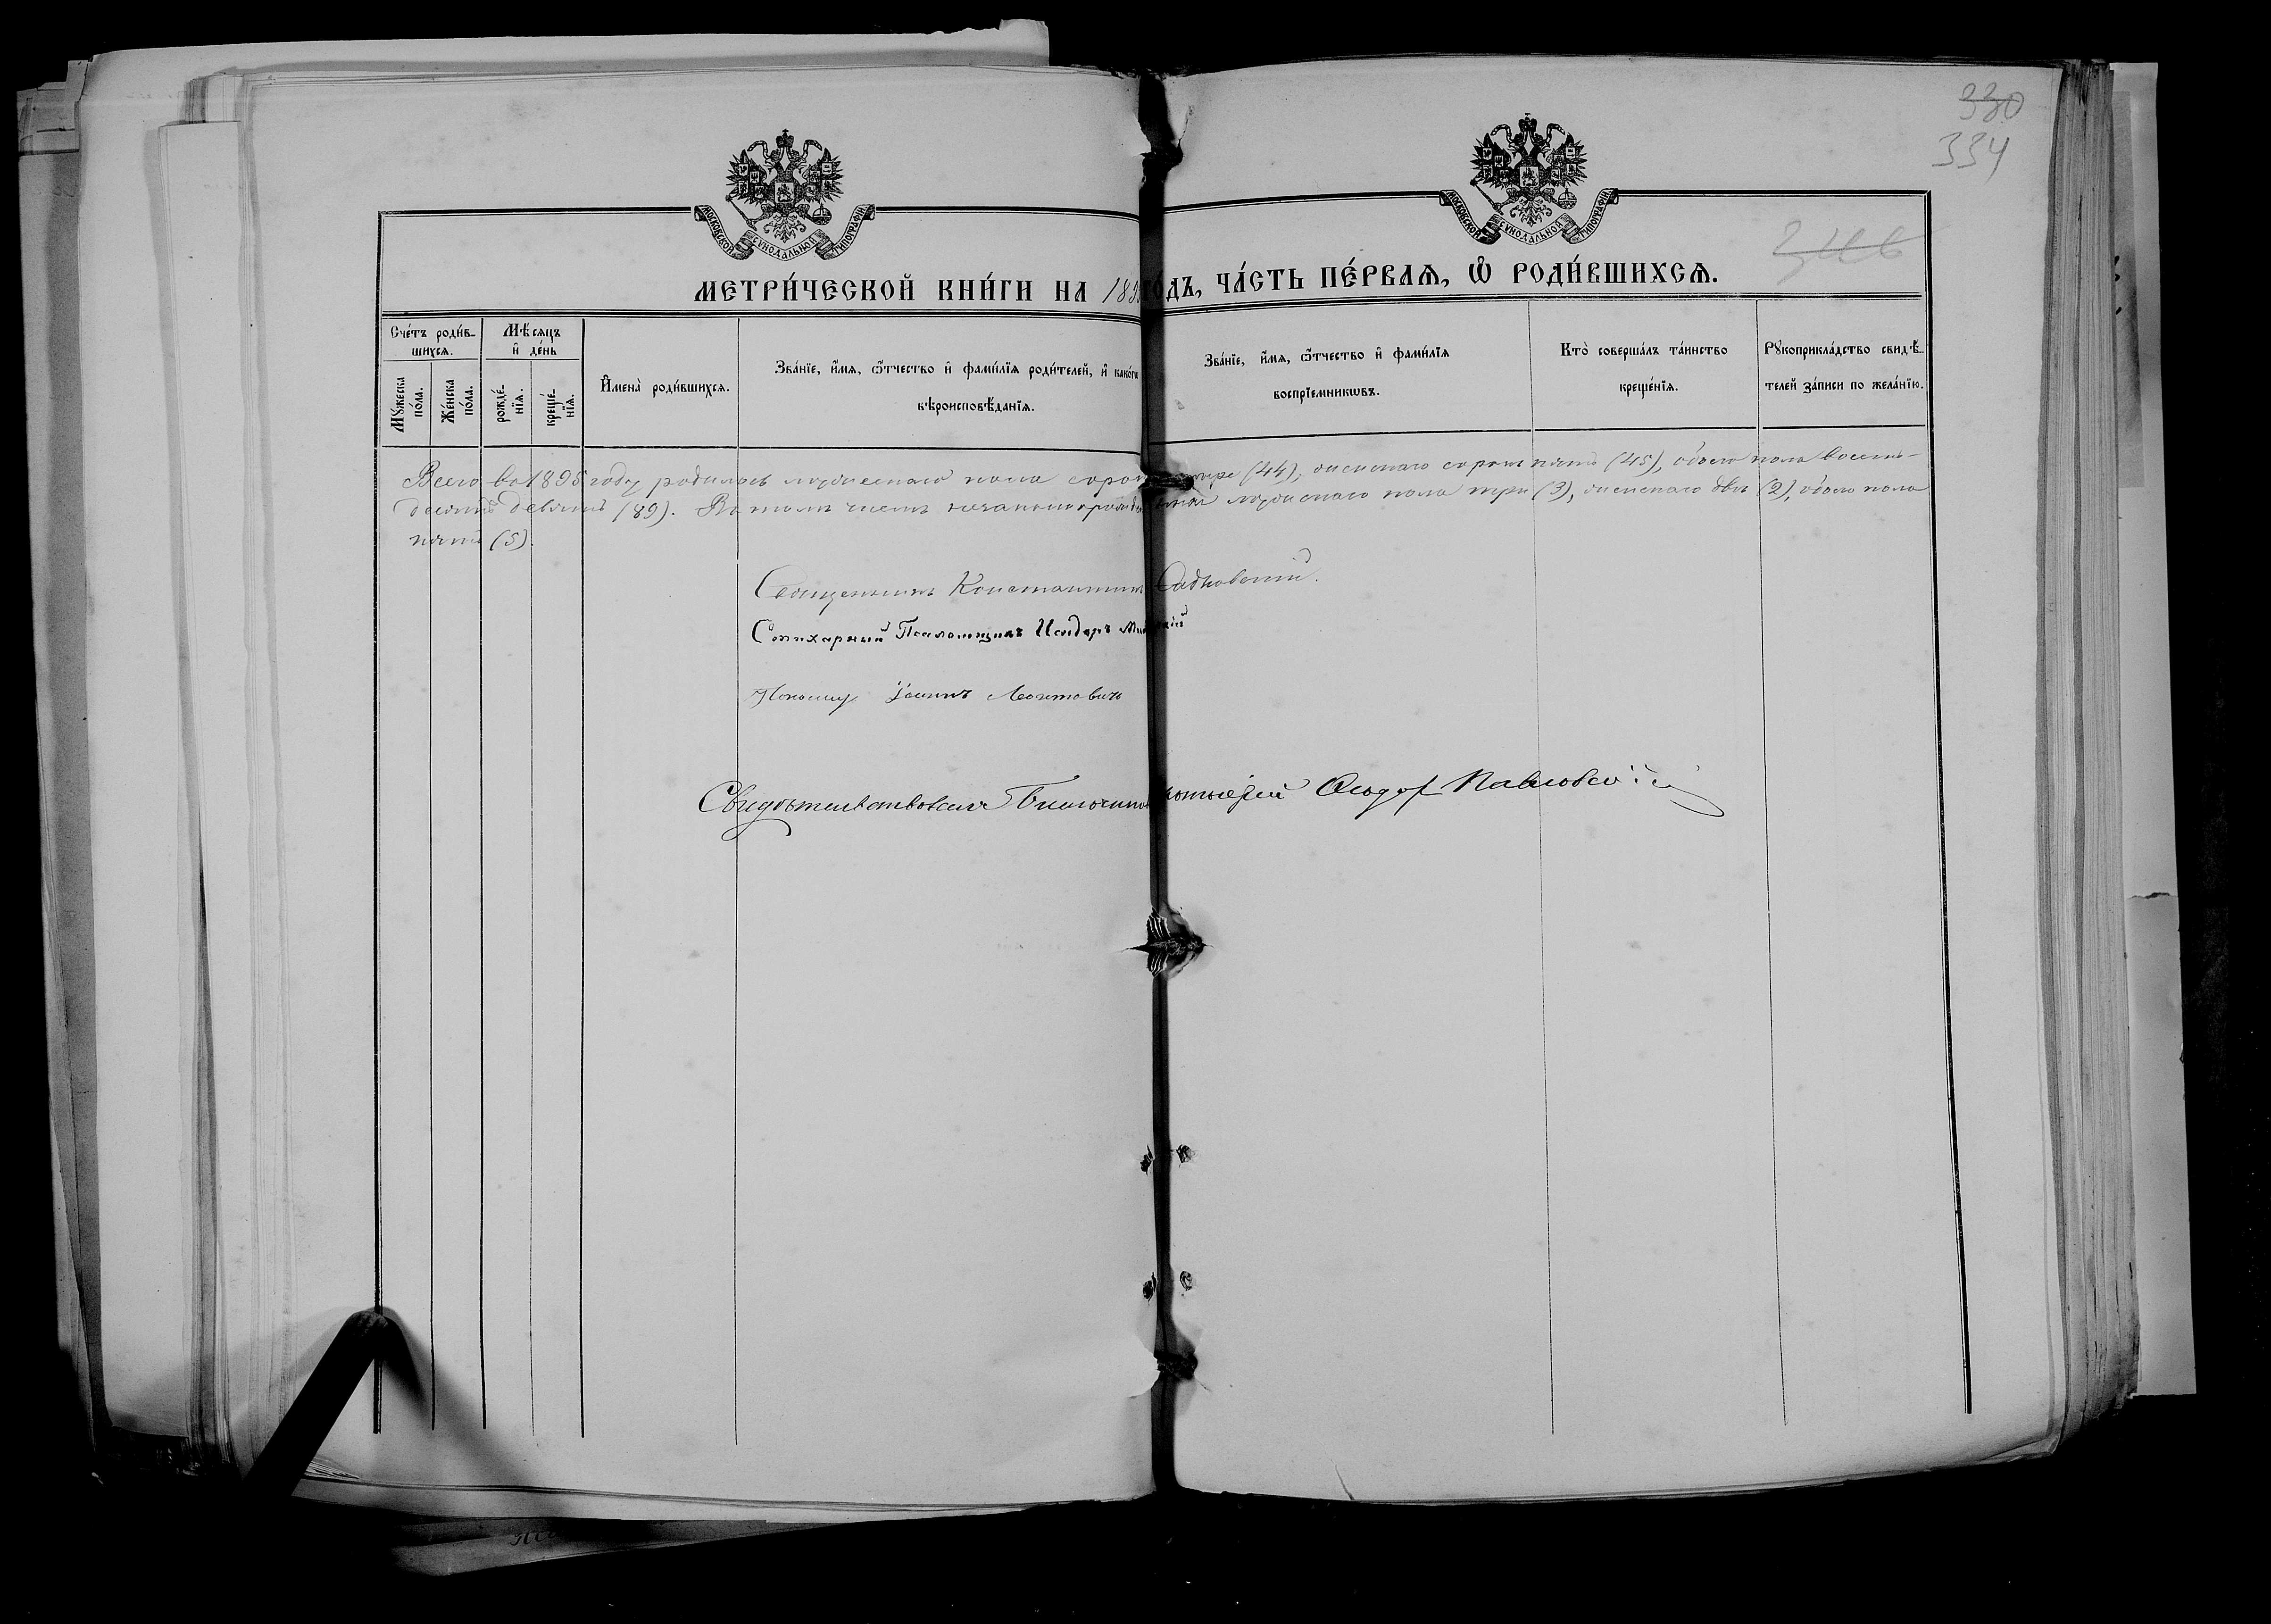 330
334
МОСКОВСКОЙ СѴНОДАЛЬНОЙ ТИПОГРАФІИ
МОСКОВСКОЙ СѴНОДАЛЬНОЙ ТИПОГРАФІИ
МЕТРИ́ЧЕСКОЙ КНИ́ГИ НА 189 ГО́ДЪ, ЧА́СТЬ ПЕ́РВАЯ, Ѡ҆ РОДИ́ВШИХСЯ.
Сче́тъ роди́в-
шихся.
Мꙋ́жеска по́ла.
Же́нска по́ла.
Мѣ́сяцъ и҆ де́нь
рожде́-нїя.
креще́-нїя.
И҆мена̀ роди́вшихся.
Зва́нїе, и҆́мя, ѻ҆́тчество и҆ фами́лїя роди́телей, и҆ како́гѡ
вѣроисповѣ́данїя.
Зва́нїе, и҆́мя, ѻ҆́тчество и҆ фами́лїя
воспрїе́мникѡвъ.
Кто̀ соверша́лъ та́инство
креще́нїя.
Рꙋкоприкла́дство свидѣ́-
телей за́писи по жела́нїю.
Всего во 1895 году родилось мужескаго пола сорок четыре (44), женскаго сорокъ пять (45), обоего пола восемь-
десятъ девять (89). Въ томъ числѣ мужескаго пола три (3), женскаго двѣ (2), обоего пола
пять (5).
Священникъ Константинъ Садковскій.
Стихарный Псаломщикъ Исидоръ
Іоаннъ
Свидѣтельствовалъ Протоіерей Ѳеодоръ Павловскій